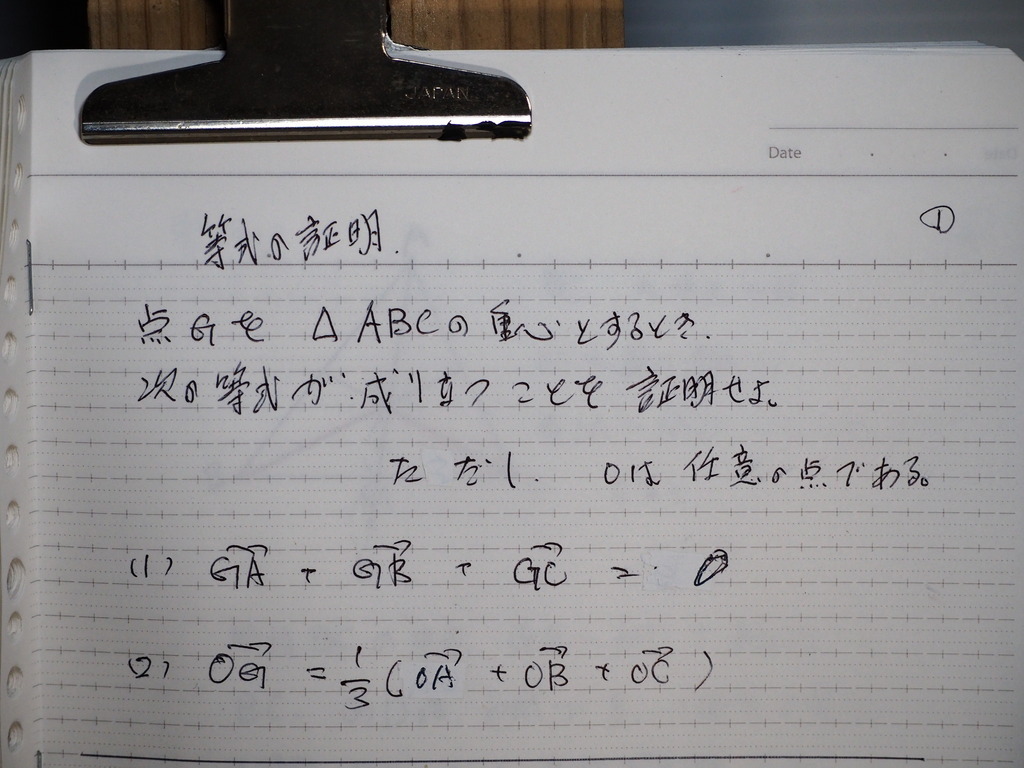 JAPAN
Date
①
等式の証明.
点Gを △ABCの重心とするとき.
次の等式が成り立つことを証明せよ。
ただし. Oは任意の点である。
(1) \overrightarrow{GA} + \overrightarrow{GB} + \overrightarrow{GC} = 0
(2) \overrightarrow{OG} = \frac{1}{3}(\overrightarrow{OA} + \overrightarrow{OB} + \overrightarrow{OC})